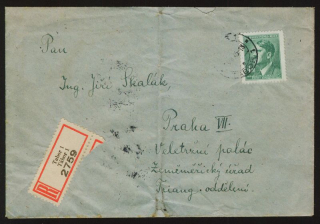 Pán
Ing. Jiří Skalák,
Praha VII.
Veletržní palác
Zeměměřický úřad
Triang. oddělení.
R
Tabor 1
Tábor 1
2759